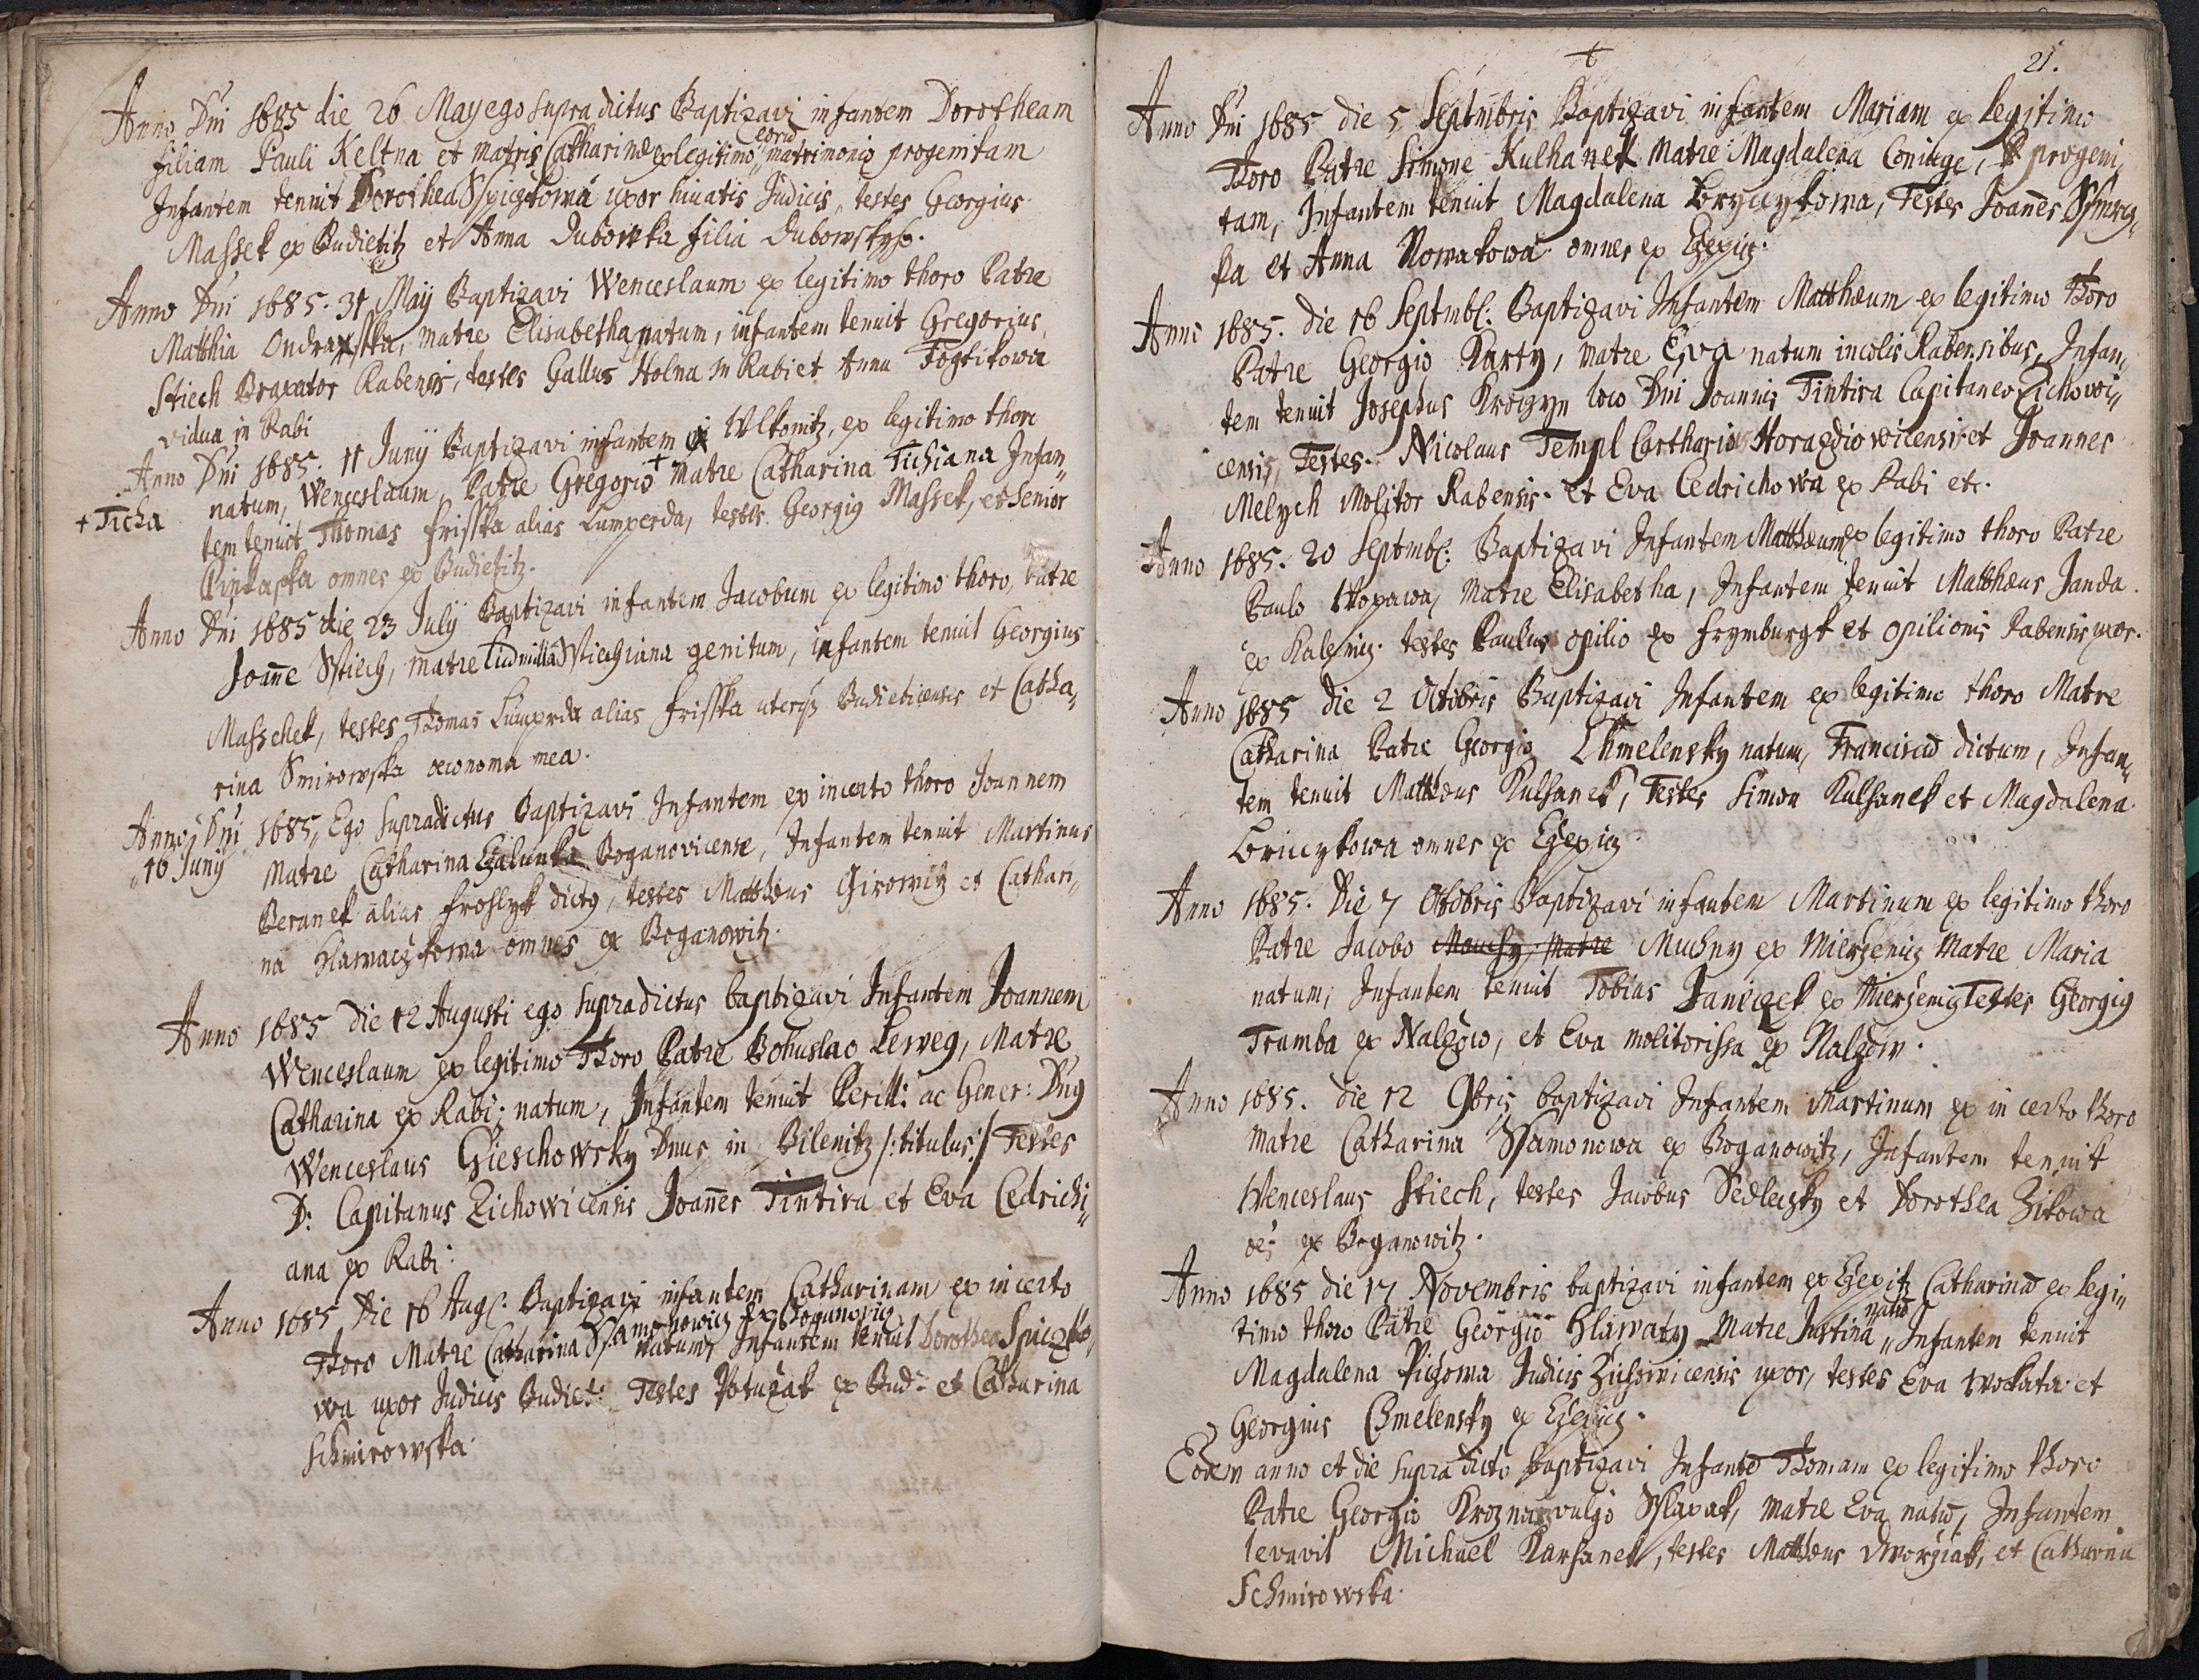 Anno Dni 1685 die 26 May ego supradictus Baptizavi infantem Dorotheam
filiam Pauli Keltna et matris Catharinæ ex legitimo eorū matrimonio progenitam
Infantem tenuit Dorothea Sspiczkowa uxor huiatis Judicis, testes Georgius
Massek ex Budietitz et Anna Dubowska filia
Anno Dni 1685. 31 Maij Baptizavi Wenceslaum ex legitimo thoro Patre
Matthia matre Elisabetha natum, infantem tenuit Gregorius
Stiech Braxator Rabensis, testes Gallus Holna in Rabi et Anna
vidua in Rabi
Anno Dni 1685. 11 Junij Baptizavi infantem Wlkonitz, ex legitimo thoro
natum, Wenceslaum, Patre Gregorio + matre Catharina Tichiana Infan„
+ Ticha
tem tenuit Thomas Frisska alias Lumperda, testes Georgig Massek, et senior
omnes ex Budietitz.
Anno Dni 1685 die 23 July Baptizavi infantem Jacobum ex legitimo thoro, Patre
Joañe Sstiech, matre Ludmilla Sstiechiana genitum, infantem tenuit Georgius
Masschek, testes Thomas Lumperda alias Frisska uterq3 Budieticensis et Catha„
rina Smirowska œconoma mea.
Anno Dni 1685, Ego supradictus Baptizavi Infantem ex incerto thoro Joannem
„16 Juny
Matre Catharina Boganovicense, Infantem tenuit Martinus
Beranek alias Frohlyck dictg, testes Matthæus Girowitz et Cathari„
na Hlawaczkowa omnes ex Boganowitz.
Anno 1685 die 12 Augusti ego supradictus baptizavi Infantem Joannem
Wenceslaum ex legitimo Thoro Patre Bohuslao Leweg, Matre
Catharina ex Rabi; natum, Infantem tenuit Perill: ac Gener: Dng
Wenceslaus Gieschowsky Dnus in Bilenitz /: titulus :/ Testes
D: Capitanus Zichowicensis Joañes Tintira et Eva Cedrichi„
ana ex Rabi:
Anno 1685 Die 16 Augs. Baptizavi infantem Catharinam ex incerto
Thoro Matre Catharina Ssamonowicz ex Boganovicz natum, Infantem tenuit Dorothea Spiczko„
wa uxor Judicis Budiet: Testes Potužak ex Bud: et Catharina
Schmirowska.
21.
Anno Dni 1685 die 5 Septmbris Baptizavi infantem Mariam ex legitimo
Thoro Patre Simone Kulhanek Matre Magdalena Coniuge, progeni„
tam, Infantem tenuit Magdalena Testes Joañes
ka et Anna Nowakowa omnes ex Czepicz.
Anno 1685. die 16 Septmb: Baptizavi Infantem Matthæum ex legitimo Thoro
Patre Georgio Karty, matre Eva natum incolis Rabensibus, Infan„
tem tenuit Josephus loco Dni Joannis Tintira Capitaneo Zichowi„
censis, Testes. Nicolaus Templ Carthario Horazdiowicensis et Joannes
Melych Molitor Rabensis. et Eva Cedrichowa ex Rabi etc.
Anno 1685. 20 Septmb: Baptizavi Infantem Matthæum ex legitimo thoro Patre
Paulo matre Elisabetha, Infantem tenuit Matthæus Janda
ex Kalenicz. testes Paulus opilio ex Frymburgk et opilionis Rabensis uxor.
Anno 1685 die 2 Octobris Baptizavi Infantem ex legitimo thoro Matre
Catharina Patre Georgio Chmelensky natum, Franciscū dictum, Infan„
tem tenuit Matthæus Kulhanek, Testes Simon Kulhanek et Magdalena
omnes ex Czepicz.
Anno 1685. Die 7 Octobris Baptizavi infantem Martinum ex legitimo thoro
Patre Jacobo Mouchy, Matre Muchny ex Mierzenicz Matre Maria
natum, Infantem tenuit Tobias Janiczek ex Mierzenicz Testes Georgig
Tramba ex Nalzow, et Eva molitorissa ex Nalzow.
Anno 1685. die 12 9bris baptizavi Infantem Martinum ex incerto thoro
matre Catharina Ssamonowa ex Boganowitz, Infantem tenuit
Wenceslaus Stiech, testes Jacobus Sedleczky et Dorothea Zitowa
oẽs ex Boganowitz.
Anno 1685 die 17 Novembris baptizavi infantem ex Czepitz Catharinā ex legi„
timo thoro Patre Georgio Hlawaty Matre Justina natā, Infantem tenuit
Magdalena Pichowa Judicis Zichowicensis uxor, testes Eva Wokata et
Georgius Chmelensky ex Czepicz.
Eodem anno et die supra dicto baptizavi Infantē Thomam ex legitimo thoro
Patre Georgio vulgo matre Eva natū, Infantem
levavit Michael Karhanek, testes Matthæus Dworziak, et Catharina
Schmirowska.